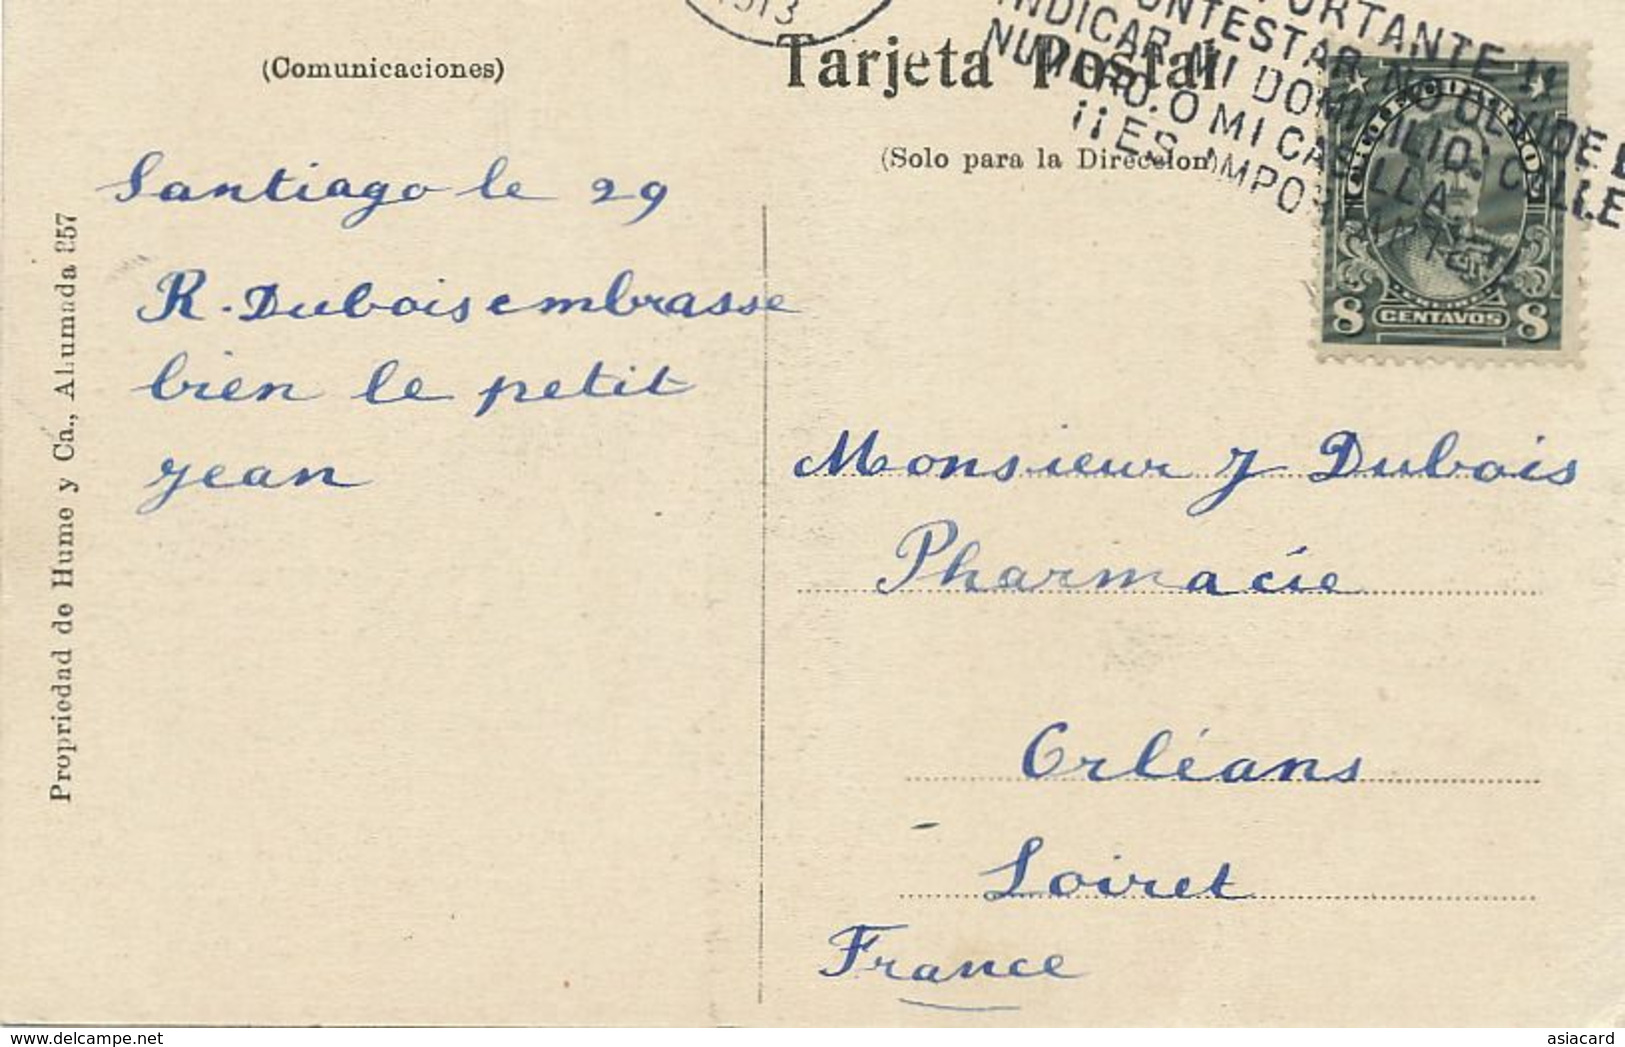 1913
¡¡ES IMPORTANTE!!
CONTESTAR NO OLVIDE
INDICAR MI DOMICILIO: CALLE
NUMERO. O MI CASILLA
¡¡ES IMPORTANTE!!
(Comunicaciones)
Tarjeta Postal
(Solo para la Direccion)
Santiago le 29
R. Dubois embrasse
bien le petit
jean
Propriedad de Hume y Ca., Ahumada 357
8 CENTAVOS 8
Monsieur J Dubois
Pharmacie
Orléans
Loiret
France
asiacard